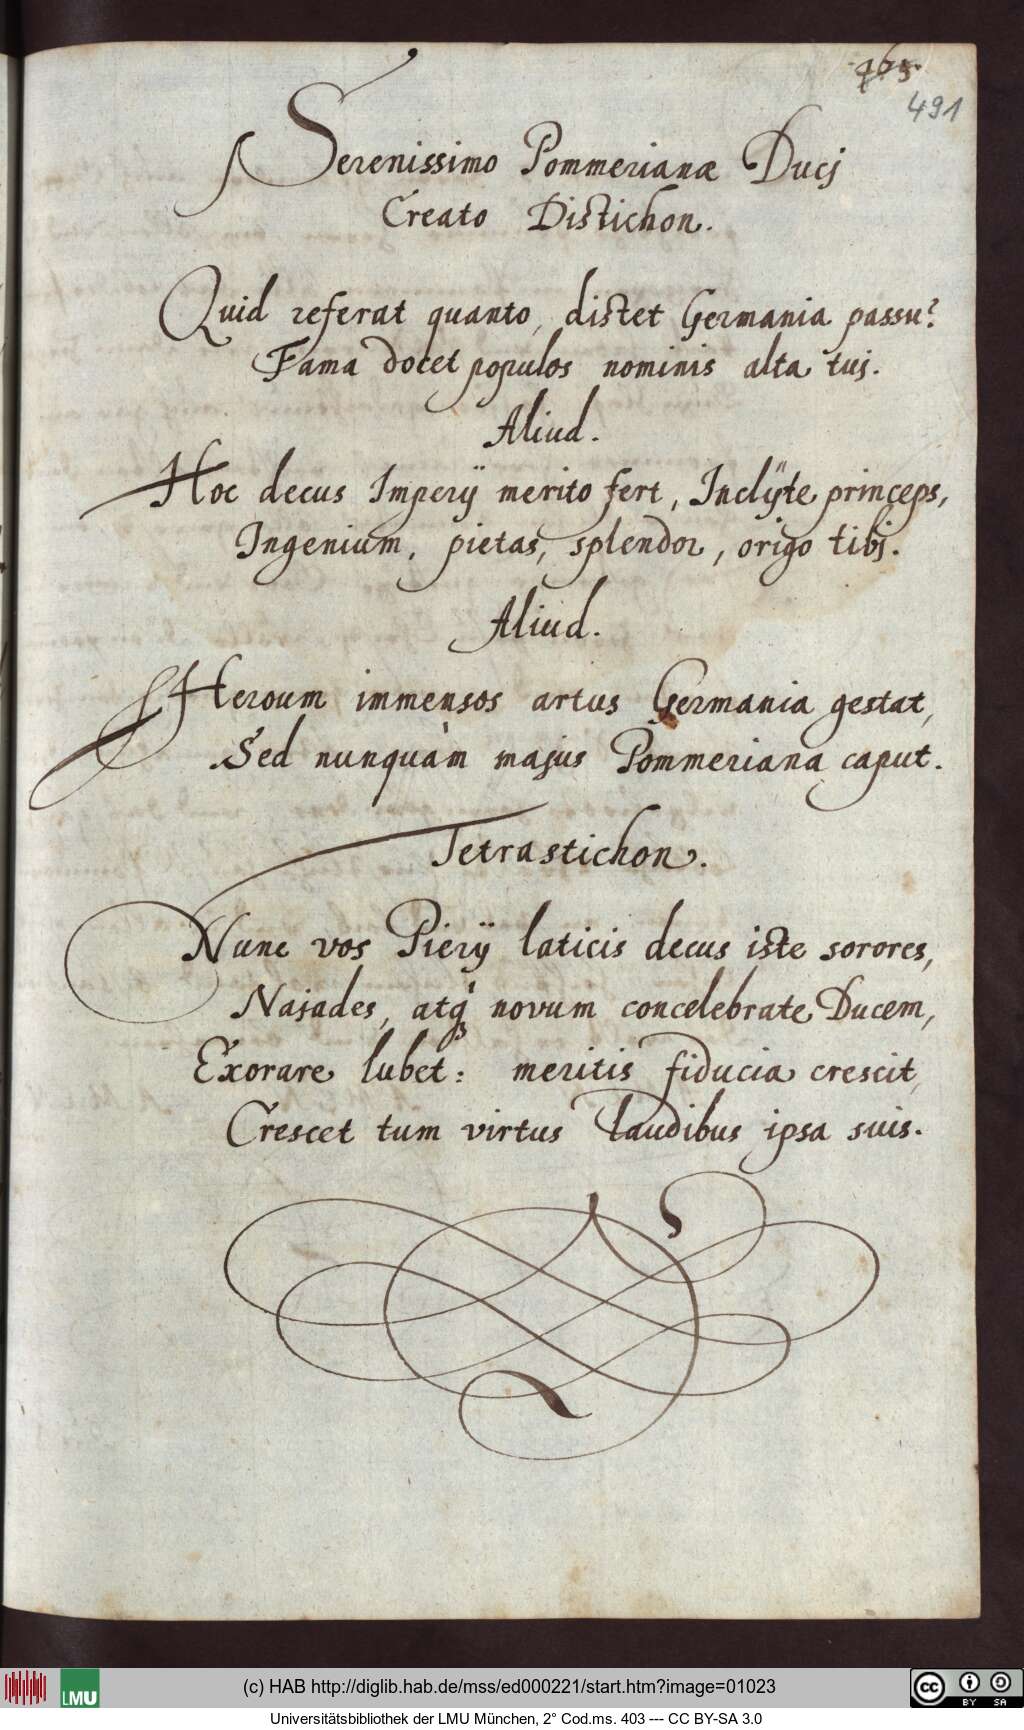 465.
491
Serenissimo Pommerianæ Ducj
Creato Distichon.
Quid referat quanto, distet Germania passu?
Fama docet populos nominis alta tuj.
Aliud.
Hoc decus Imperÿ merito fert, Inclÿte princeps,
Ingenium, pietas, splendor, origo tibj.
Aliud.
Heroum immensos artus Germania gestat,
Sed nunquàm majus Pommeriana caput.
Tetrastichon.
Nunc vos Pierÿ laticis decus iste sorores,
Najades, atq́ꝫ novum concelebrate Ducem,
Exorare lubet: meritis fiducia crescit,
Crescet tum virtus laudibus ipsa suis.
LMU
(c) HAB http://diglib.hab.de/mss/ed000221/start.htm?image=01023
cc BY SA
Universitätsbibliothek der LMU München, 2° Cod.ms. 403 --- CC BY-SA 3.0